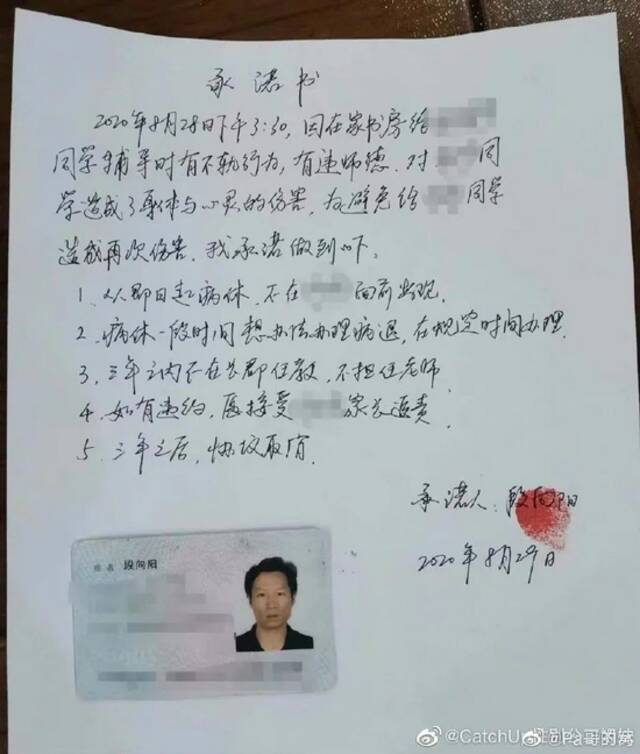 承诺书
2020年8月28日下午3:30,因在家书房给
同学辅导时有不轨行为,有违师德.对 同
学造成了身体与心灵的伤害,为避免给 同学
造成再次伤害.我承诺做到以下.
1. 从即日起病休.不在 面前出现.
2. 病休一段时间想办法办理病退,在规定时间办理.
3. 三年之内不在长郡任教,不担任老师.
4. 如有违约,愿接受 家长追责.
5. 三年之后,协议取消.
承诺人:段向阳
2020年8月29日
姓名 段向阳
@CatchU
@Pa哥的窝